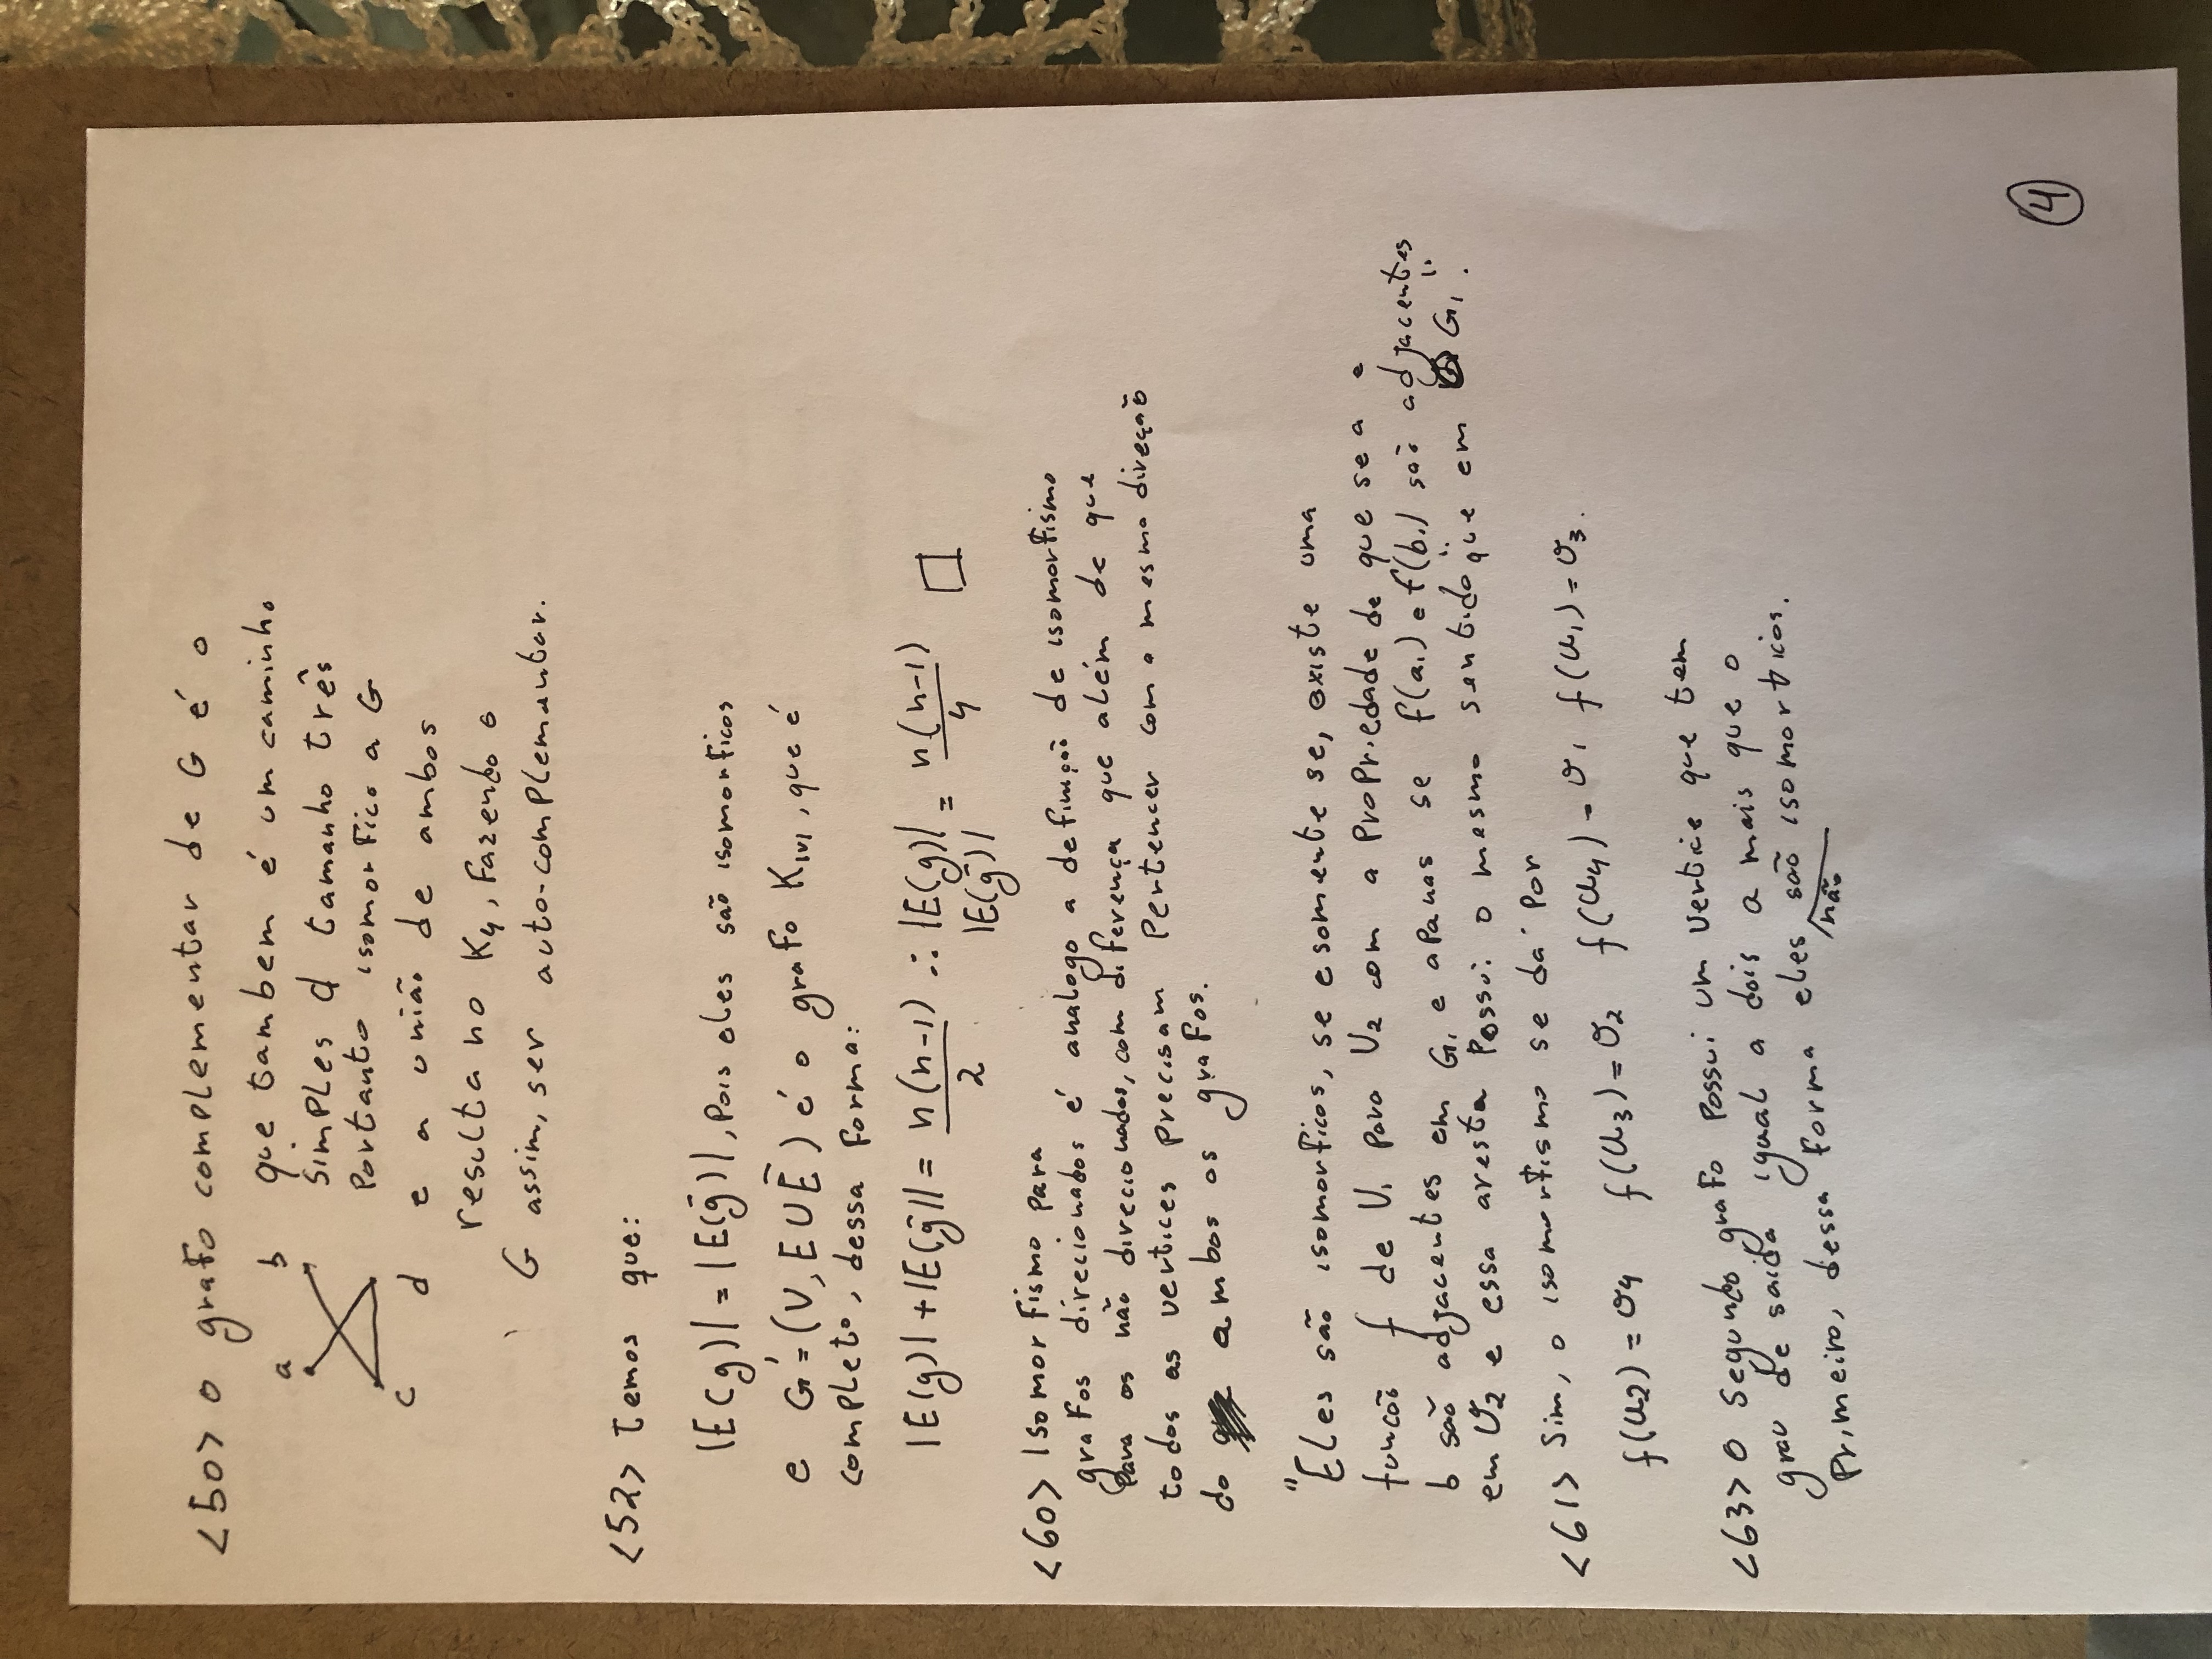 <50> O grafo complementar de G é o
a b que tambem é um caminho
simples d tamanho três
Portanto isomorfico a G
c d e a união de ambos
resulta no K₄, Fazendo o
G assim, ser auto-complementar.
<52> Temos que:
|E(g)| = |E(ḡ)|, Pois eles são isomorficos
e G' = (V, E U Ē) é o grafo K|v|, que é
completo, dessa forma:
|E(g)| + |E(ḡ)| = n(n-1)/2 ∴ |E(g)| = n(n-1)/4 □
|E(ḡ)|
<60> Isomorfismo para
grafos direcionados é analogo a definição de isomorfismo
Para os não direcionados, com diferença que além de que
todos as vertices precisam Pertencer com a mesma direção
do ambos os grafos.
"Eles são isomorficos, se e somente se, existe uma
funcão f de V₁ para V₂ com a Propriedade de que se a e
b são adjacentes em G₁ e apanas se f(a₁) e f(b₁) são adjacentes
em V₂ e essa aresta Possui o mesmo sentido "que em G₁".
<61> Sim, o isomorfismo se dá por
f(u₂) = v₄ f(u₃) = v₂ f(u₄) = v₁ f(u₁) = v₃.
<63> O Segundo grafo Possui um vertice que tem
grau de saida igual a dois a mais que o
Primeiro, dessa forma eles são isomorficos.
não
4